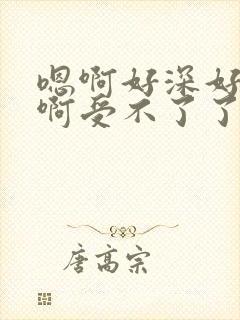 嗯啊好深好
啊受不了了
唐高宗